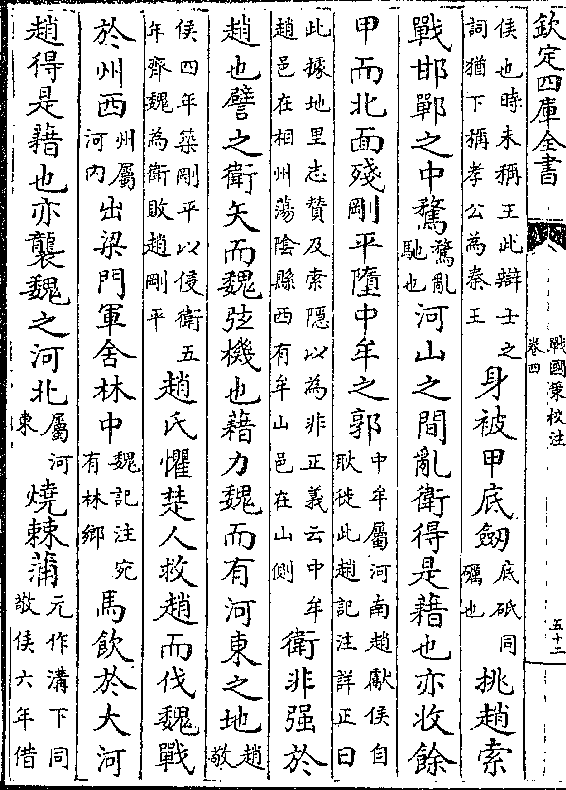 欽定四庫全書
戰國策校注
卷四
五十二
侯也時未稱王此辯士之
詞猶下稱孝公為秦王
身被甲底劔
底砥同
礪也
挑趙索
戰邯鄲之中騖
騖亂
馳也
河山之間亂衛得是藉也亦收餘
甲而北面殘剛平墮中牟之郭
中牟屬河南趙獻侯自
耿徙此趙記注詳正曰
此據地里志贊及索隱以為非正義云中牟
趙邑在相州蕩陰縣西有牟山邑在山側
衛非强於
趙也譬之衛矢而魏弦機也藉力魏而有河東之地
趙
敬
侯四年築剛平以侵衛五
年齊魏為衛敗趙剛平
趙氏懼楚人救趙而伐魏戰
於州西
州屬
河内
出梁門軍舍林中
魏記注宛
有林鄉
馬飲於大河
趙得是藉也亦襲魏之河北
屬河
東
燒棘蒲
元作溝下同
敬侯六年借